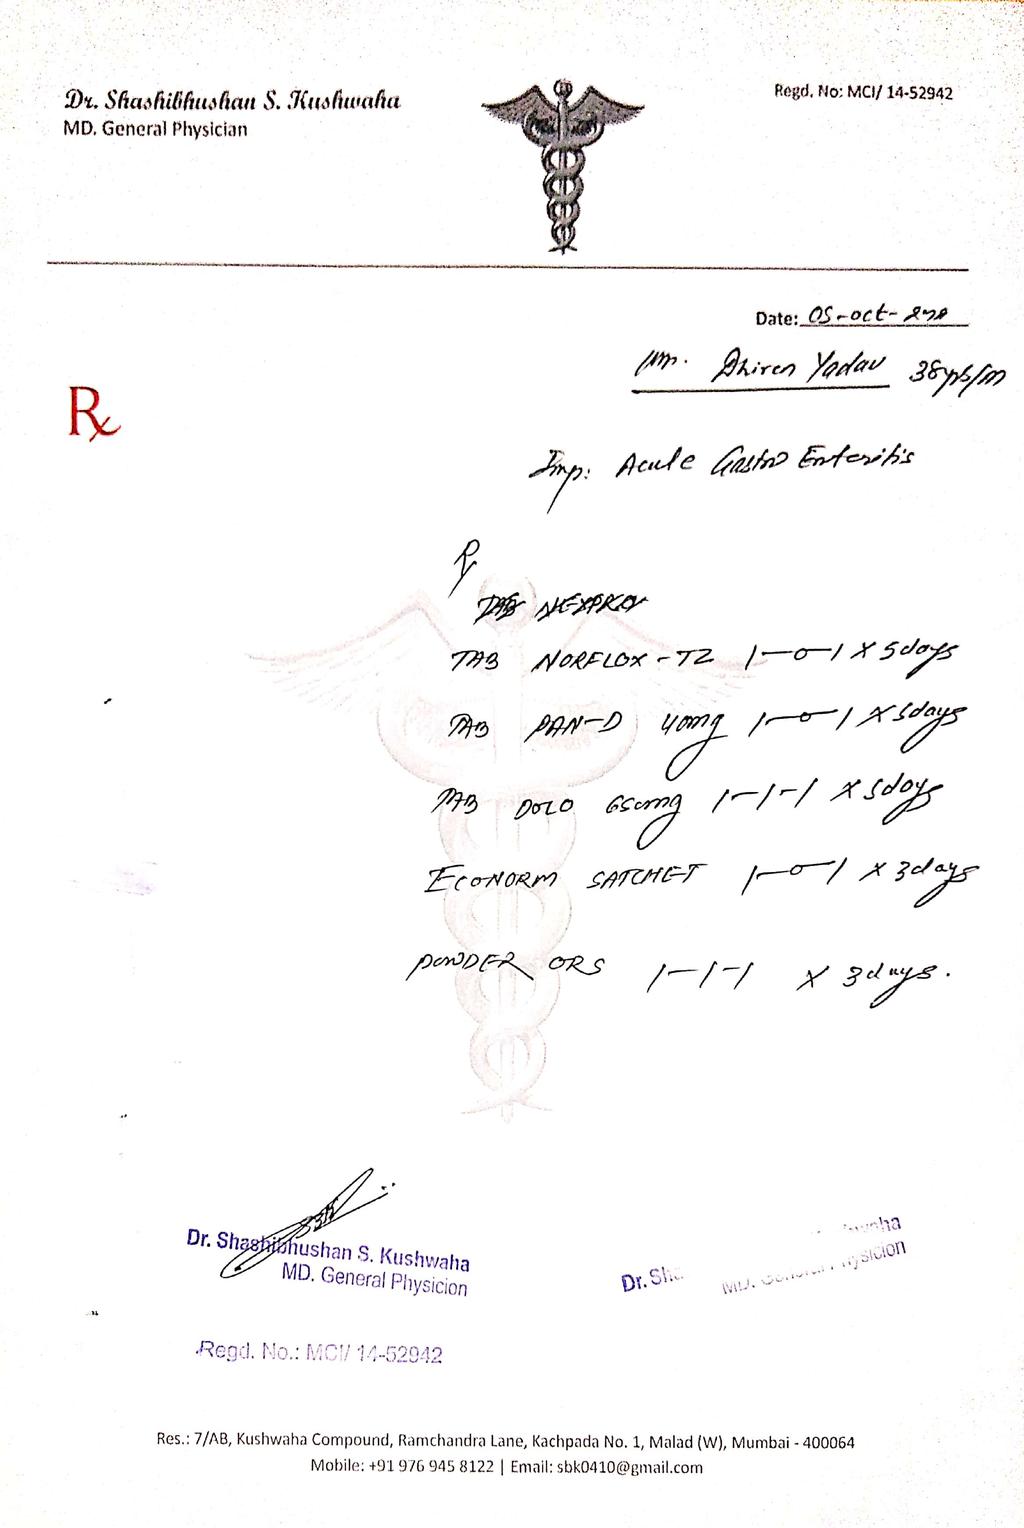 Dr. Shashibhushan S. Kushwaha
MD. General Physician
Regd. No: MCI/ 14-52942
Date: 05-oct-
Mr. Dhiren Yadav 38yrs/m
Rx
Imp: Acute Gastro Enteritis
Rx
TAB
TAB NORFLOX-TZ 1-0-1 X 5days
TAB PAN-D 40mg 1-0-1 X 5days
TAB DOLO 650mg 1-1-1 X 5days
ECONORM SATCHET 1-0-1 X 3days
POWDER ORS 1-1-1 X 3days.
Dr. Shashibhushan S. Kushwaha
MD. General Physicion
Regd. No.: MCI/ 14-52942
Dr. Sha
MD. General Physicion
Res.: 7/AB, Kushwaha Compound, Ramchandra Lane, Kachpada No. 1, Malad (W), Mumbai - 400064
Mobile: +91 976 945 8122 | Email: sbk0410@gmail.com